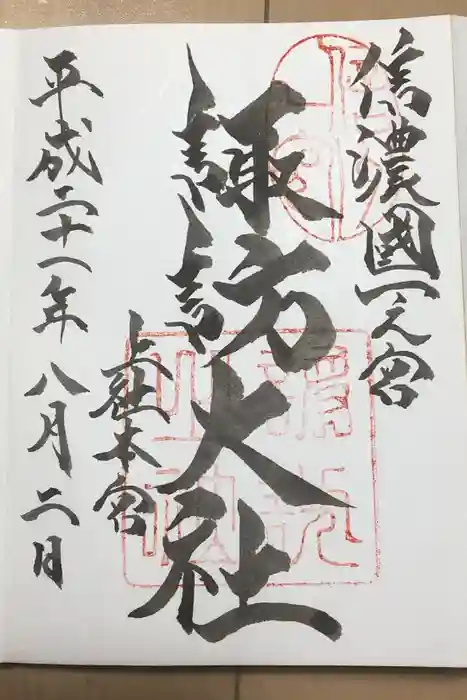 信濃國一之宮
諏訪大社
上社本宮
平成二十一年八月二日